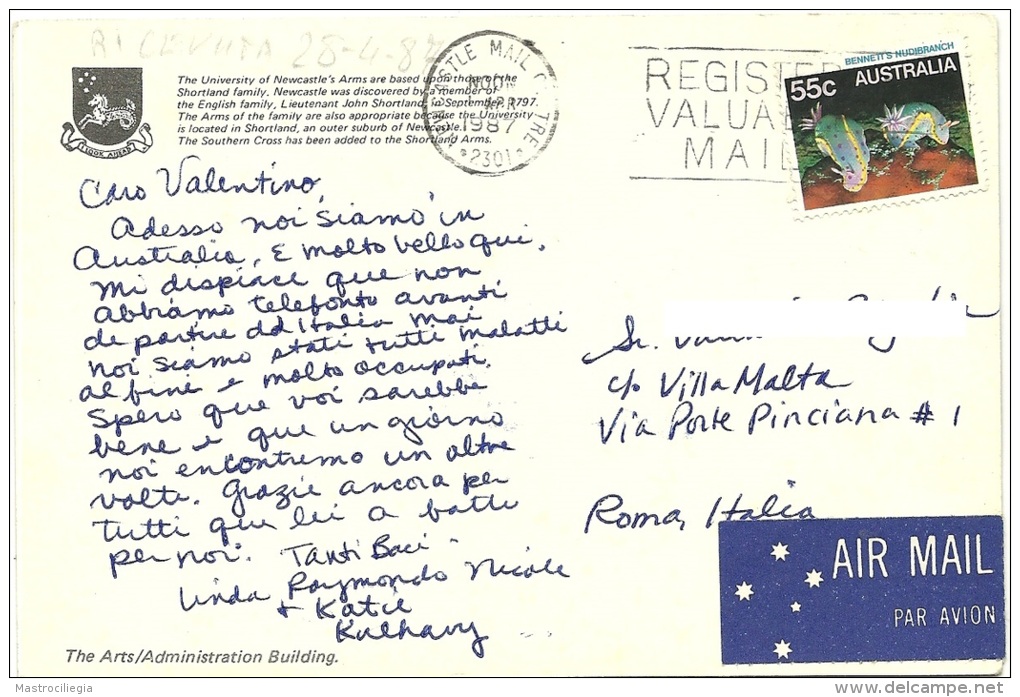 RICEVUTA 28-4-87
The University of Newcastle's Arms are based upon those of the
Shortland family. Newcastle was discovered by a member of
the English family, Lieutenant John Shortland, in September 1797.
The Arms of the family are also appropriate because the University
is located in Shortland, an outer suburb of Newcastle.
The Southern Cross has been added to the Shortland Arms.
I LOOK AHEAD
NEWCASTLE MAIL CENTRE
NOON
1987
2301
REGISTE
VALUA
MAIL
BENNETT'S NUDIBRANCH
55c AUSTRALIA
Caro Valentino,
Adesso noi siamo in
Australia, E molto bello qui.
Mi dispiace que non
abbiamo telefonto avanti
de partire dd Italia mai
noi siamo stati tutti malatti
al fine e molto occupati.
Spero que voi sarebbe
bene e que un giorno
noi encontremo un altre
volte. Grazie ancora per
tutti que lei a fatto
per noi. Tanti Baci
Linda Raymondo Nicole
+ Katie
Kulhavy
Sr.
c/o Villa Malta
Via Porte Pinciana # 1
Roma, Italia
AIR MAIL
PAR AVION
The Arts/Administration Building.
Mastrociliegia
delcampe.net